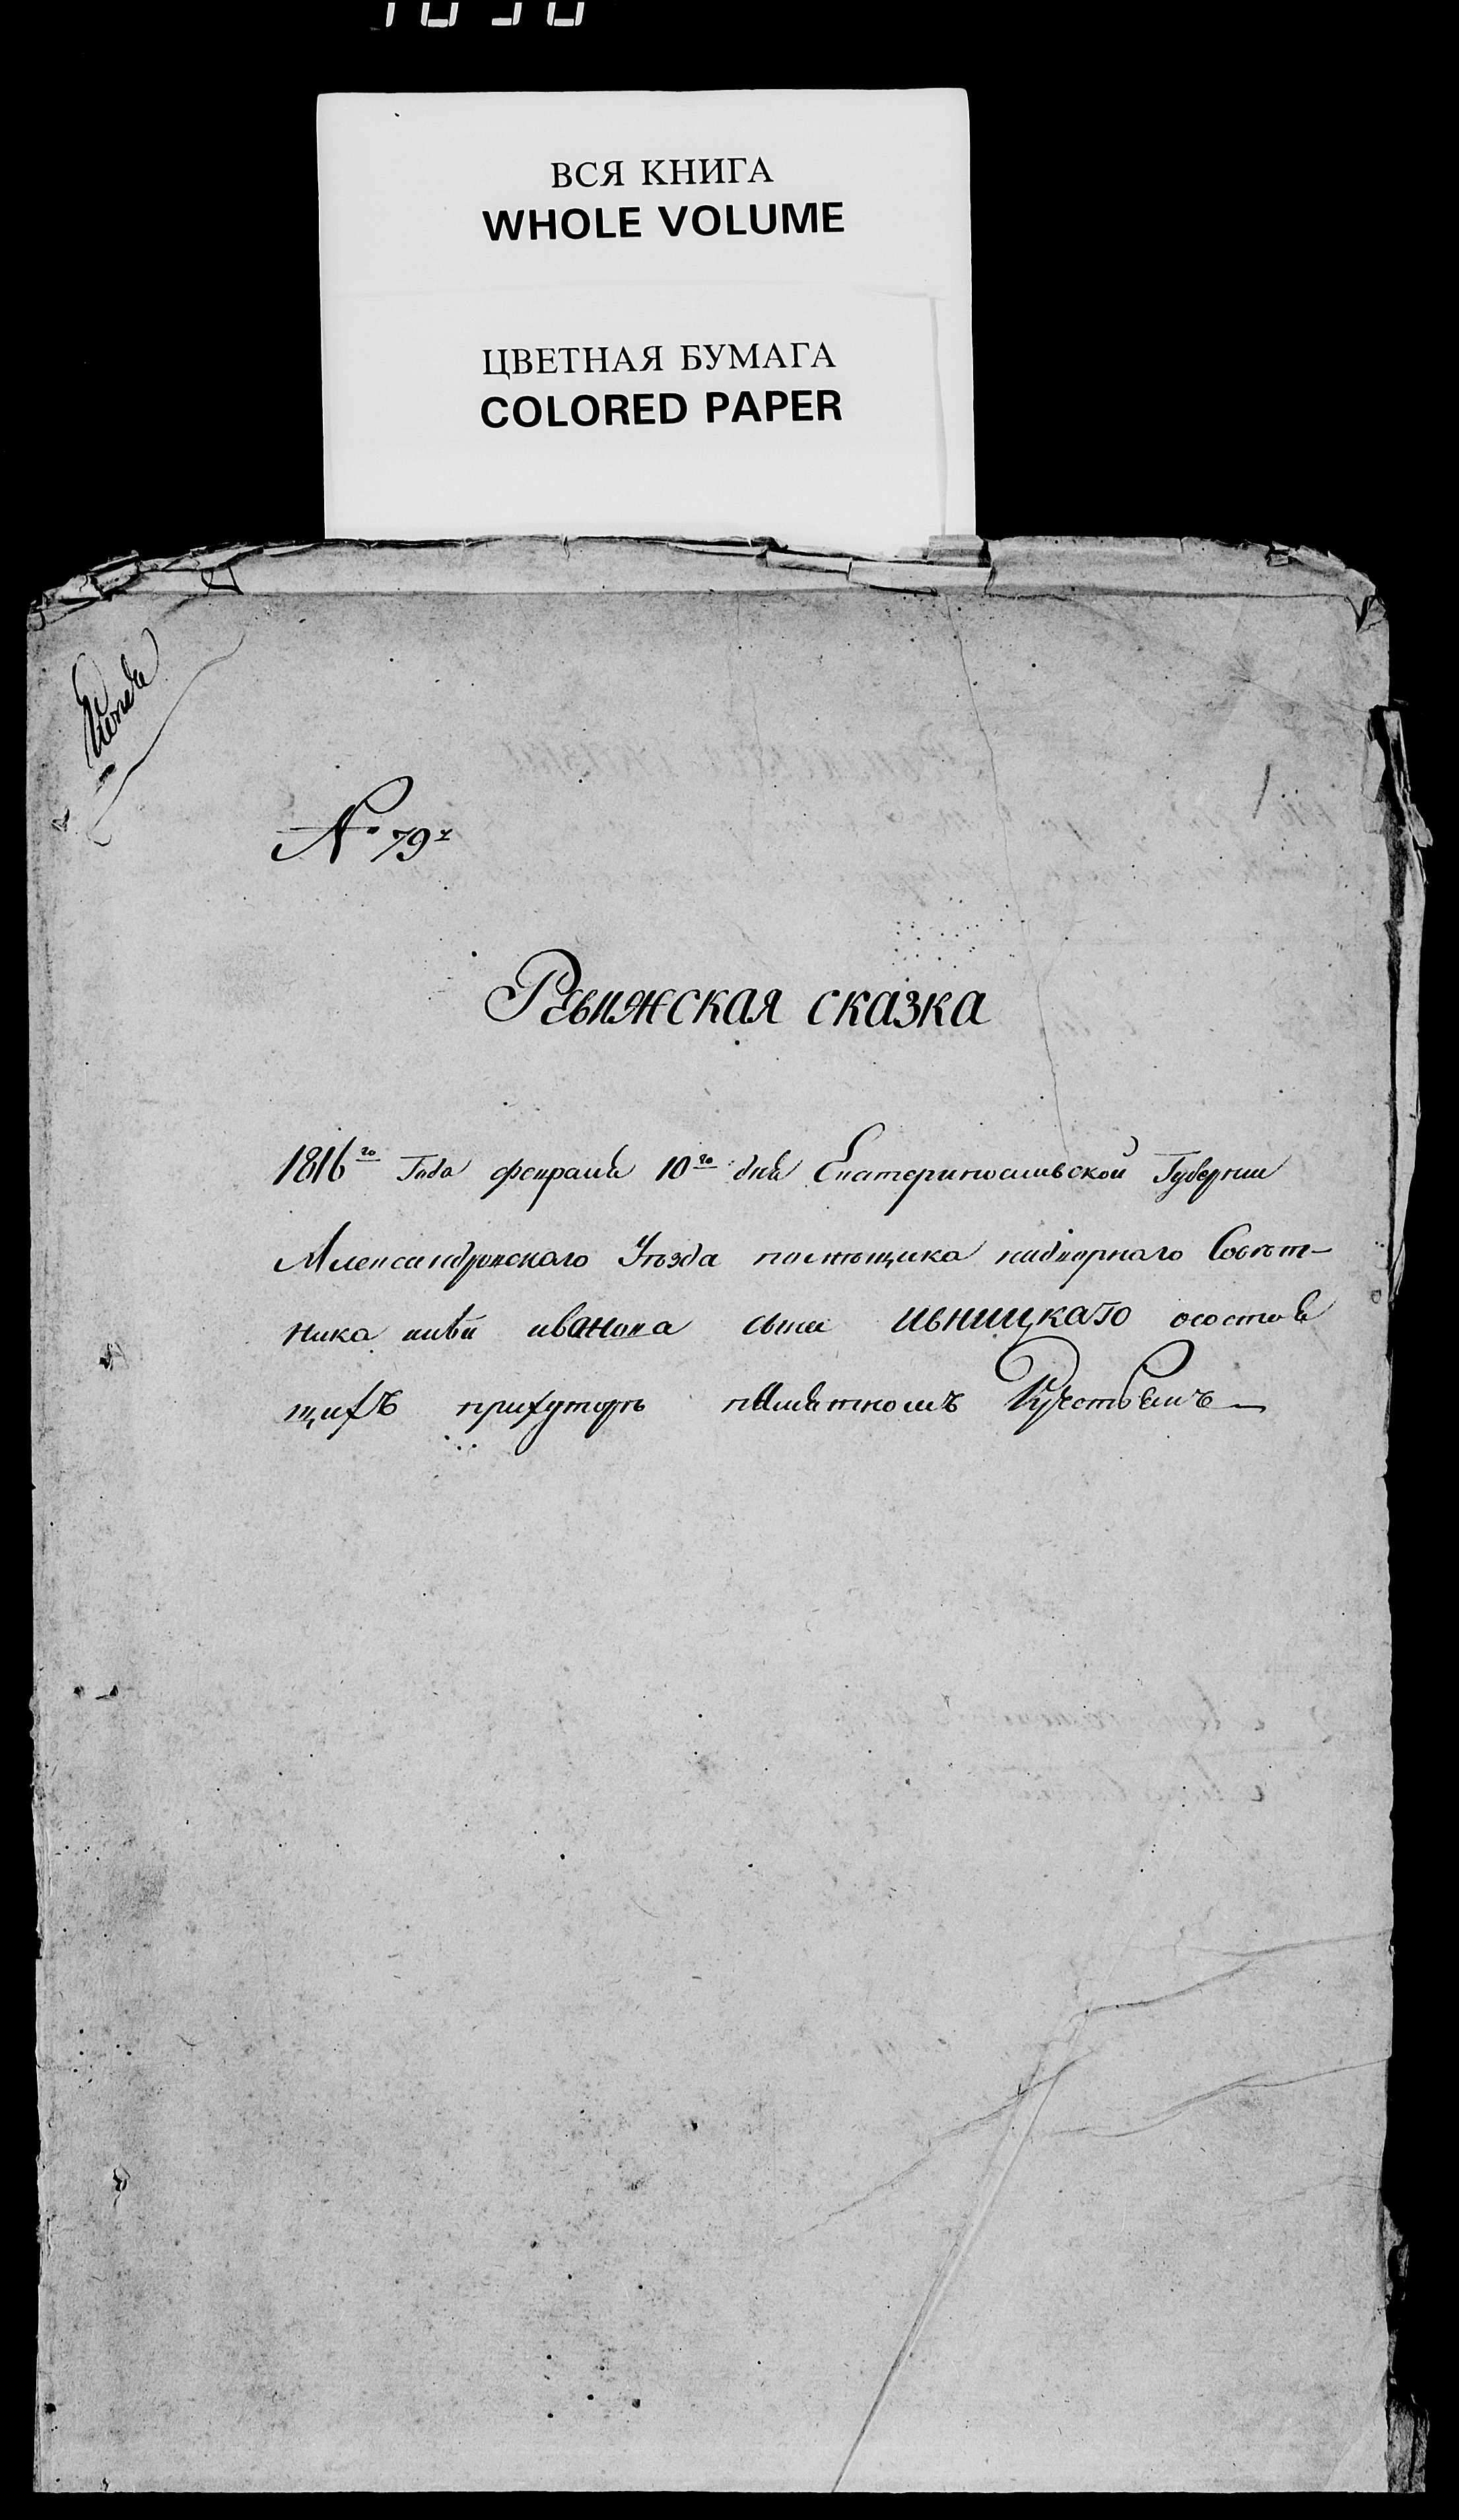 ВСЯ КНИГА
WHOLE VOLUME
ЦВЕТНАЯ БУМАГА
COLORED PAPER
№ 79й
Ревижская сказка
1816го Года февраля 10го дня Екатеринославской Губернии
Александровского Уѣзда помѣщика надворнаго Совѣт-
ника ивана сына осостоя
щихъ прихуторѣ